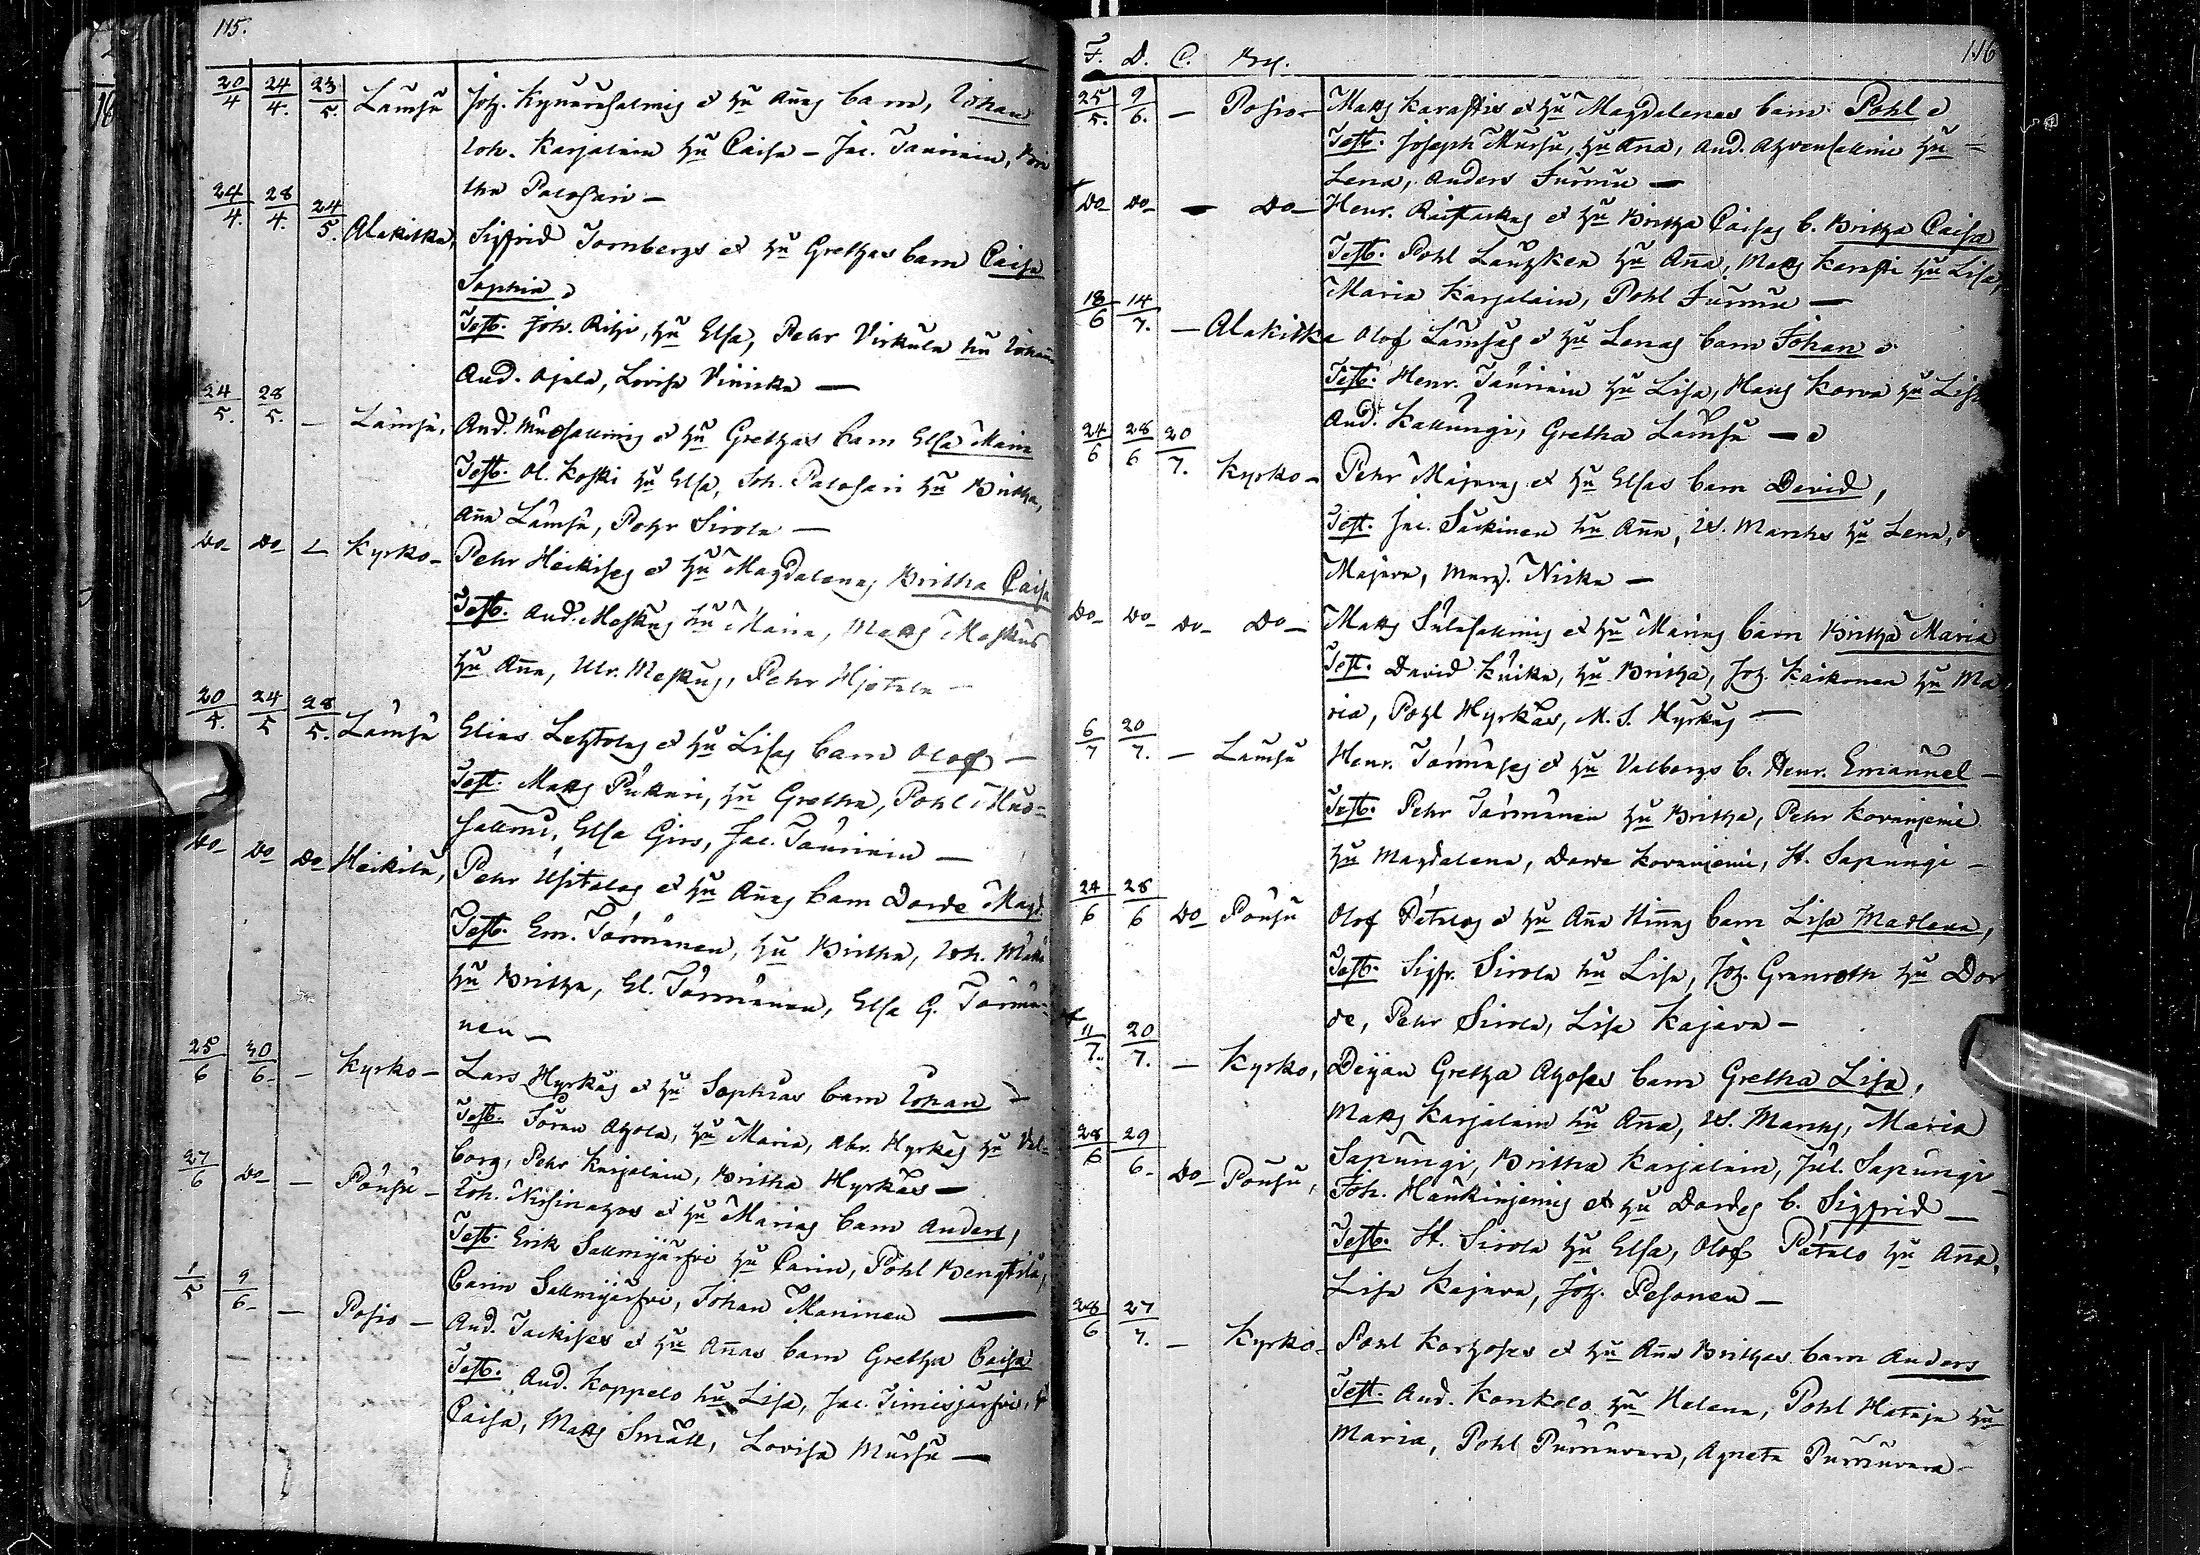 115.
20/4 24/4. 23/5. Lämsä Joh. Kynuresalmis et Hu Añas barn, Johan
Joh. Karjalain Hu Caisa - Jac. Taurinin, Bri
tha Palosari -
24/4. 28/4. 24/5. Alakitka, Sigfrid Tornbergs et Hu Grethas barn Caisa
Sophia
Test. Joh. Riihi, Hu Elsa, Pehr Virkula hu Johaña
And. Ojala, Lovisa Viniska —
24/5. 28/5. — Lämsä, And. Mudsallmis et Hu Grethas barn Elsa Maria
Test. Ol. Koski Hu Elsa, Joh. Palosari Hu Britha,
Aña Lämsä, Pehr Sirola —
Do Do — Kyrko- Pehr Heikises et Hu Magdalenas Britha Caisa
Test. And. Moskus hu Maria, Matts Moskus
Hu Aña, Ulr. Moskus, Pehr Hjetala -
20/5. 24/5 28/5. Lämsä Elias Lehtolas et Hu Lisas barn Olof —
Test. Matts Pukari, Hu Gretha, Pohl Mud=
sallmi, Elsa Girs, Jac. Taurinin —
Do Do Do Heikilä, Pehr Uhitalos et Hu Añas barn Dorde Magd.
Test. Em. Törmänen, Hu Britha, Joh. Mäki
Hu Britha, El. Törmänen, Elsa G. Törmä=
nen —
25/6 30/6- — Kyrko — Lars Hyrkäs et Hu Sophias barn Johan
Test. Sören Ahola, Hu Maria, Abr. Hyrkäs Hu Val=
borg, Pehr Karjalain, Britha Hyrkäs —
27/6 Do — Pousu — Joh. Nissinahos et Hu Marias barn Anders,
Test. Erik Sallmijärfvi Hu Carin, Pohl Bengtilä,
Carin Sallmijärfvi, Johan Maninen —
1/5 9/6- — Posio — And. Jackises et Hu Añas barn Gretha Caisa
Test. And. Koppelo hu Lisa, Jac. Timisjärfvi,
Caisa, Matts Smäll, Lovisa Mursu —
F. D. C. By. 116
25/5. 9/6. — Posio — Matts Karastis et Hu Magdalenas barn Pohl
Test. Joseph Mursu, Hu Aña, And. Ahvensallmi Hu
Lena, Anders Furmu —
Do Do — Do — Henr. Räistaskas et Hu Britha Caisas b. Britha Caisa
Test. Pohl Lauhken Hu Aña, Matts Karasti Hu Lisa,
Maria Karjalain, Pohl Furmu —
18/6 14/7. — Alakitka Olof Lämsäs et Hu Lenas barn Johan
Test. Henr. Taurinin Hu Lisa, Hans Korva Hu Lisa
And. Kallungi, Gretha Lämsä —
24/6 28/6 20/7. Kyrko — Pehr Majavas et Hu Elsas barn David,
Test. Jac. Säckinen hu Aña, W. Marchs Hu Lena,
Majava, Marg. Niska —
Do Do Do Do — Matts Sulasallmis et Hu Marias barn Britha Maria
Test. David Kuika, Hu Britha, Joh. Kaikonen Hu Ma
ria, Pohl Hyrkäs, M. S. Hyrkäs —
6/7 20/7. — Lämsä Henr. Törmäses et Hu Valborgs b. Henr. Emanuel —
Test. Pehr Törmänen Hu Britha, Pehr Kovanjemi
Hu Magdalena, Dorde Kovanjemi, H. Sapungi —
24/6 28/6 Do Pousu Olof Pätalos et Hu Aña Stinas barn Lisa Madlena,
Test. Sigfr. Sirola hu Lisa, Joh. Granroth Hu Dor
de, Pehr Sirola, Lisa Kajava —
11/7. 20/7. — Kyrko, Pigan Gretha Ahoses barn Gretha Lisa,
Matts Karjalain hu Aña, W. Marchs, Maria
Sapungi, Britha Karjalain, Jul. Sapungi —
28/6 29/6- Do Pousu, Joh. Haukinjemis et Hu Dordes b. Sigfrid —
Test. H. Sirola Hu Elsa, Olof Pätalo Hu Aña,
Lisa Kajava, Joh. Pesonen —
28/6 27/7. — Kyrko — Pohl Korhoses et Hu Aña Brithas barn Anders
Test. And. Konkelo Hu Helena, Pohl Hataja Hu
Maria, Pohl Purnuvara, Agneta Purnuvara —